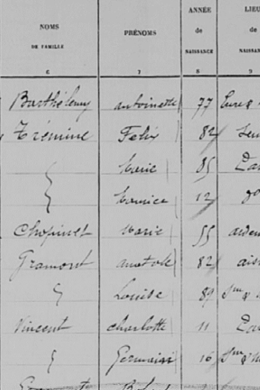 NOMS DE FAMILLE PRÉNOMS ANNÉE de NAISSANCE LIEU de NAISSANCE
6 7 8 9
Barthélemy Antoinette 77 Eure &
Trémine Felix 82
Marie 85
Maurice 12 do
Chopinet Marie 55 arden
Gramont anatole 82 ais
Louise 89 Sne &
Vincent Charlotte 11
Germaine 16 Sne &